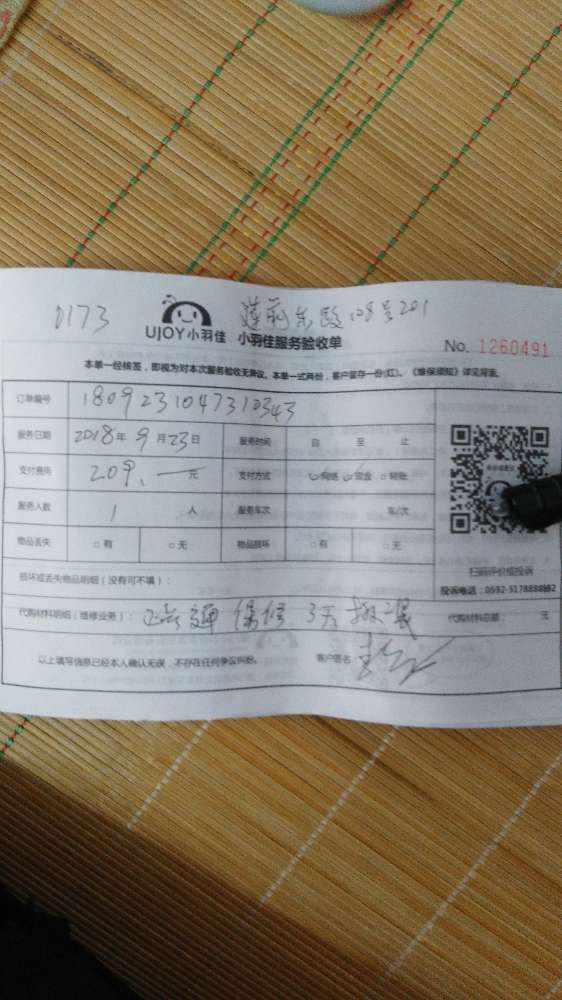 0173 莲前东路108号201
UJOY小羽佳 小羽佳服务验收单
No. 1260491
本单一经核签，即视为对本次服务验收无异议。本单一式两份，客户留存一份(红)。《维保须知》详见背面。
订单编号 1809231047310343
服务日期 2018年 9月23日 服务时间 自 至 止
支付费用 209.— 元 支付方式 网络 现金 转账
服务人数 1 人 服务车次 客/次
物品丢失 □有 □无 物品损坏 □有 □无
扫码评价或投诉
损坏或丢失物品明细（没有可不填）：
投诉电话：0592-5178888转2
代购材料明细（维修业务）： 疏通 保修 3天 代购材料总额： 元
以上填写信息已经本人确认无误，不存在任何争议纠纷。 客户签名：